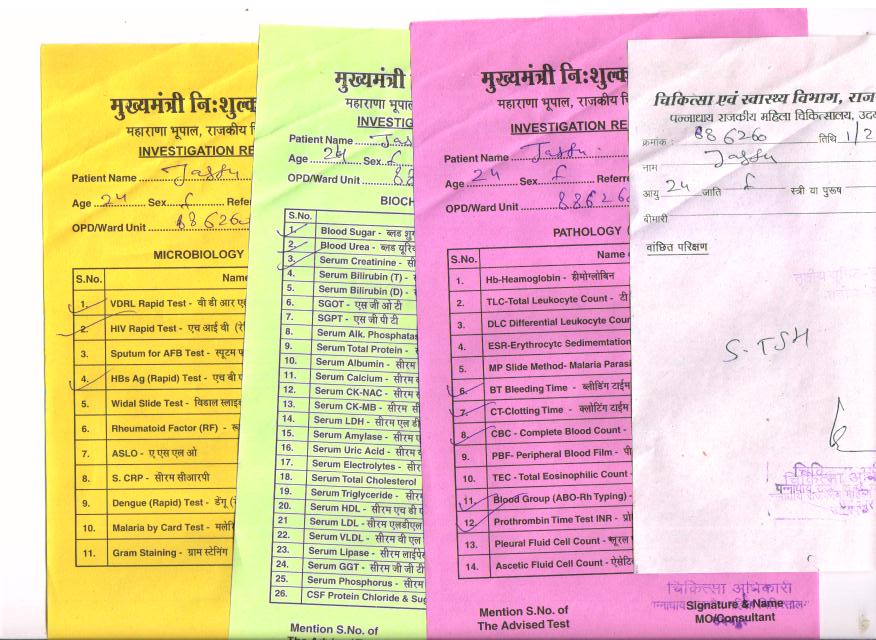 मुख्यमंत्री निःशुल्क
महाराणा भूपाल, राजकीय
INVESTIGATION RE
Patient Name Jassu
Age 24 Sex f Refer
OPD/Ward Unit 88626
MICROBIOLOGY
S.No. Name
1. VDRL Rapid Test - वी डी आर ए
2. HIV Rapid Test - एच आई वी (रे
3. Sputum for AFB Test - स्पूटम
4. HBs Ag (Rapid) Test - एच बी
5. Widal Slide Test - विडाल स्लाइ
6. Rheumatoid Factor (RF) -
7. ASLO - ए एस एल ओ
8. S. CRP - सीरम सीआरपी
9. Dengue (Rapid) Test - डेंगू
10. Malaria by Card Test - मलेरि
11. Gram Staining - ग्राम स्टेनिंग
मुख्यमंत्री
महाराणा भूपाल
INVESTIG
Patient Name Jas
Age 24 Sex f
OPD/Ward Unit 88
BIOCH
S.No.
1. Blood Sugar - ब्लड शुग
2. Blood Urea - ब्लड यूरिय
3. Serum Creatinine - सी
4. Serum Bilirubin (T) -
5. Serum Bilirubin (D) -
6. SGOT - एस जी ओ टी
7. SGPT - एस जी पी टी
8. Serum Alk. Phosphatas
9. Serum Total Protein -
10. Serum Albumin - सीरम
11. Serum Calcium - सीरम
12. Serum CK-NAC - सीरम
13. Serum CK-MB - सीरम सी
14. Serum LDH - सीरम एल डी
15. Serum Amylase - सीरम ए
16. Serum Uric Acid - सीरम
17. Serum Electrolytes - सीर
18. Serum Total Cholesterol
19. Serum Triglyceride - सीर
20. Serum HDL - सीरम एच डी
21 Serum LDL - सीरम एलडीएल
22. Serum VLDL - सीरम वी एल
23. Serum Lipase - सीरम लाईपे
24. Serum GGT - सीरम जी जी टी
25. Serum Phosphorus - सीरम
26. CSF Protein Chloride & Sug
Mention S.No. of
The Advised Test
मुख्यमंत्री निःशुल्क
महाराणा भूपाल, राजकीय चि
INVESTIGATION RE
Patient Name Jassu
Age 24 Sex f Referre
OPD/Ward Unit 88626
PATHOLOGY (
S.No. Name
1. Hb-Heamoglobin - हीमोग्लोबिन
2. TLC-Total Leukocyte Count - टी
3. DLC Differential Leukocyte Cou
4. ESR-Erythrocytc Sedimentation
5. MP Slide Method- Malaria Parasi
6. BT Bleeding Time - ब्लीडिंग टाईम
7. CT-Clotting Time - क्लोटिंग टाईम
8. CBC - Complete Blood Count -
9. PBF- Peripheral Blood Film - पी
10. TEC - Total Eosinophilic Count
11. Blood Group (ABO-Rh Typing) -
12. Prothrombin Time Test INR - प्रो
13. Pleural Fluid Cell Count -
14. Ascetic Fluid Cell Count - ऐसेटि
Mention S.No. of
The Advised Test
चिकित्सा अधिकारी
Signature & Name
MO/Consultant
चिकित्सा एवं स्वास्थ्य विभाग, राज
पन्नाधाय राजकीय महिला चिकित्सालय, उदय
क्रमांक : 886260 तिथि 1/2
नाम Jassu
आयु 24 जाति f स्त्री या पुरूष
बीमारी
वांछित परिक्षण
S. TSH
चिकित्सा अधि